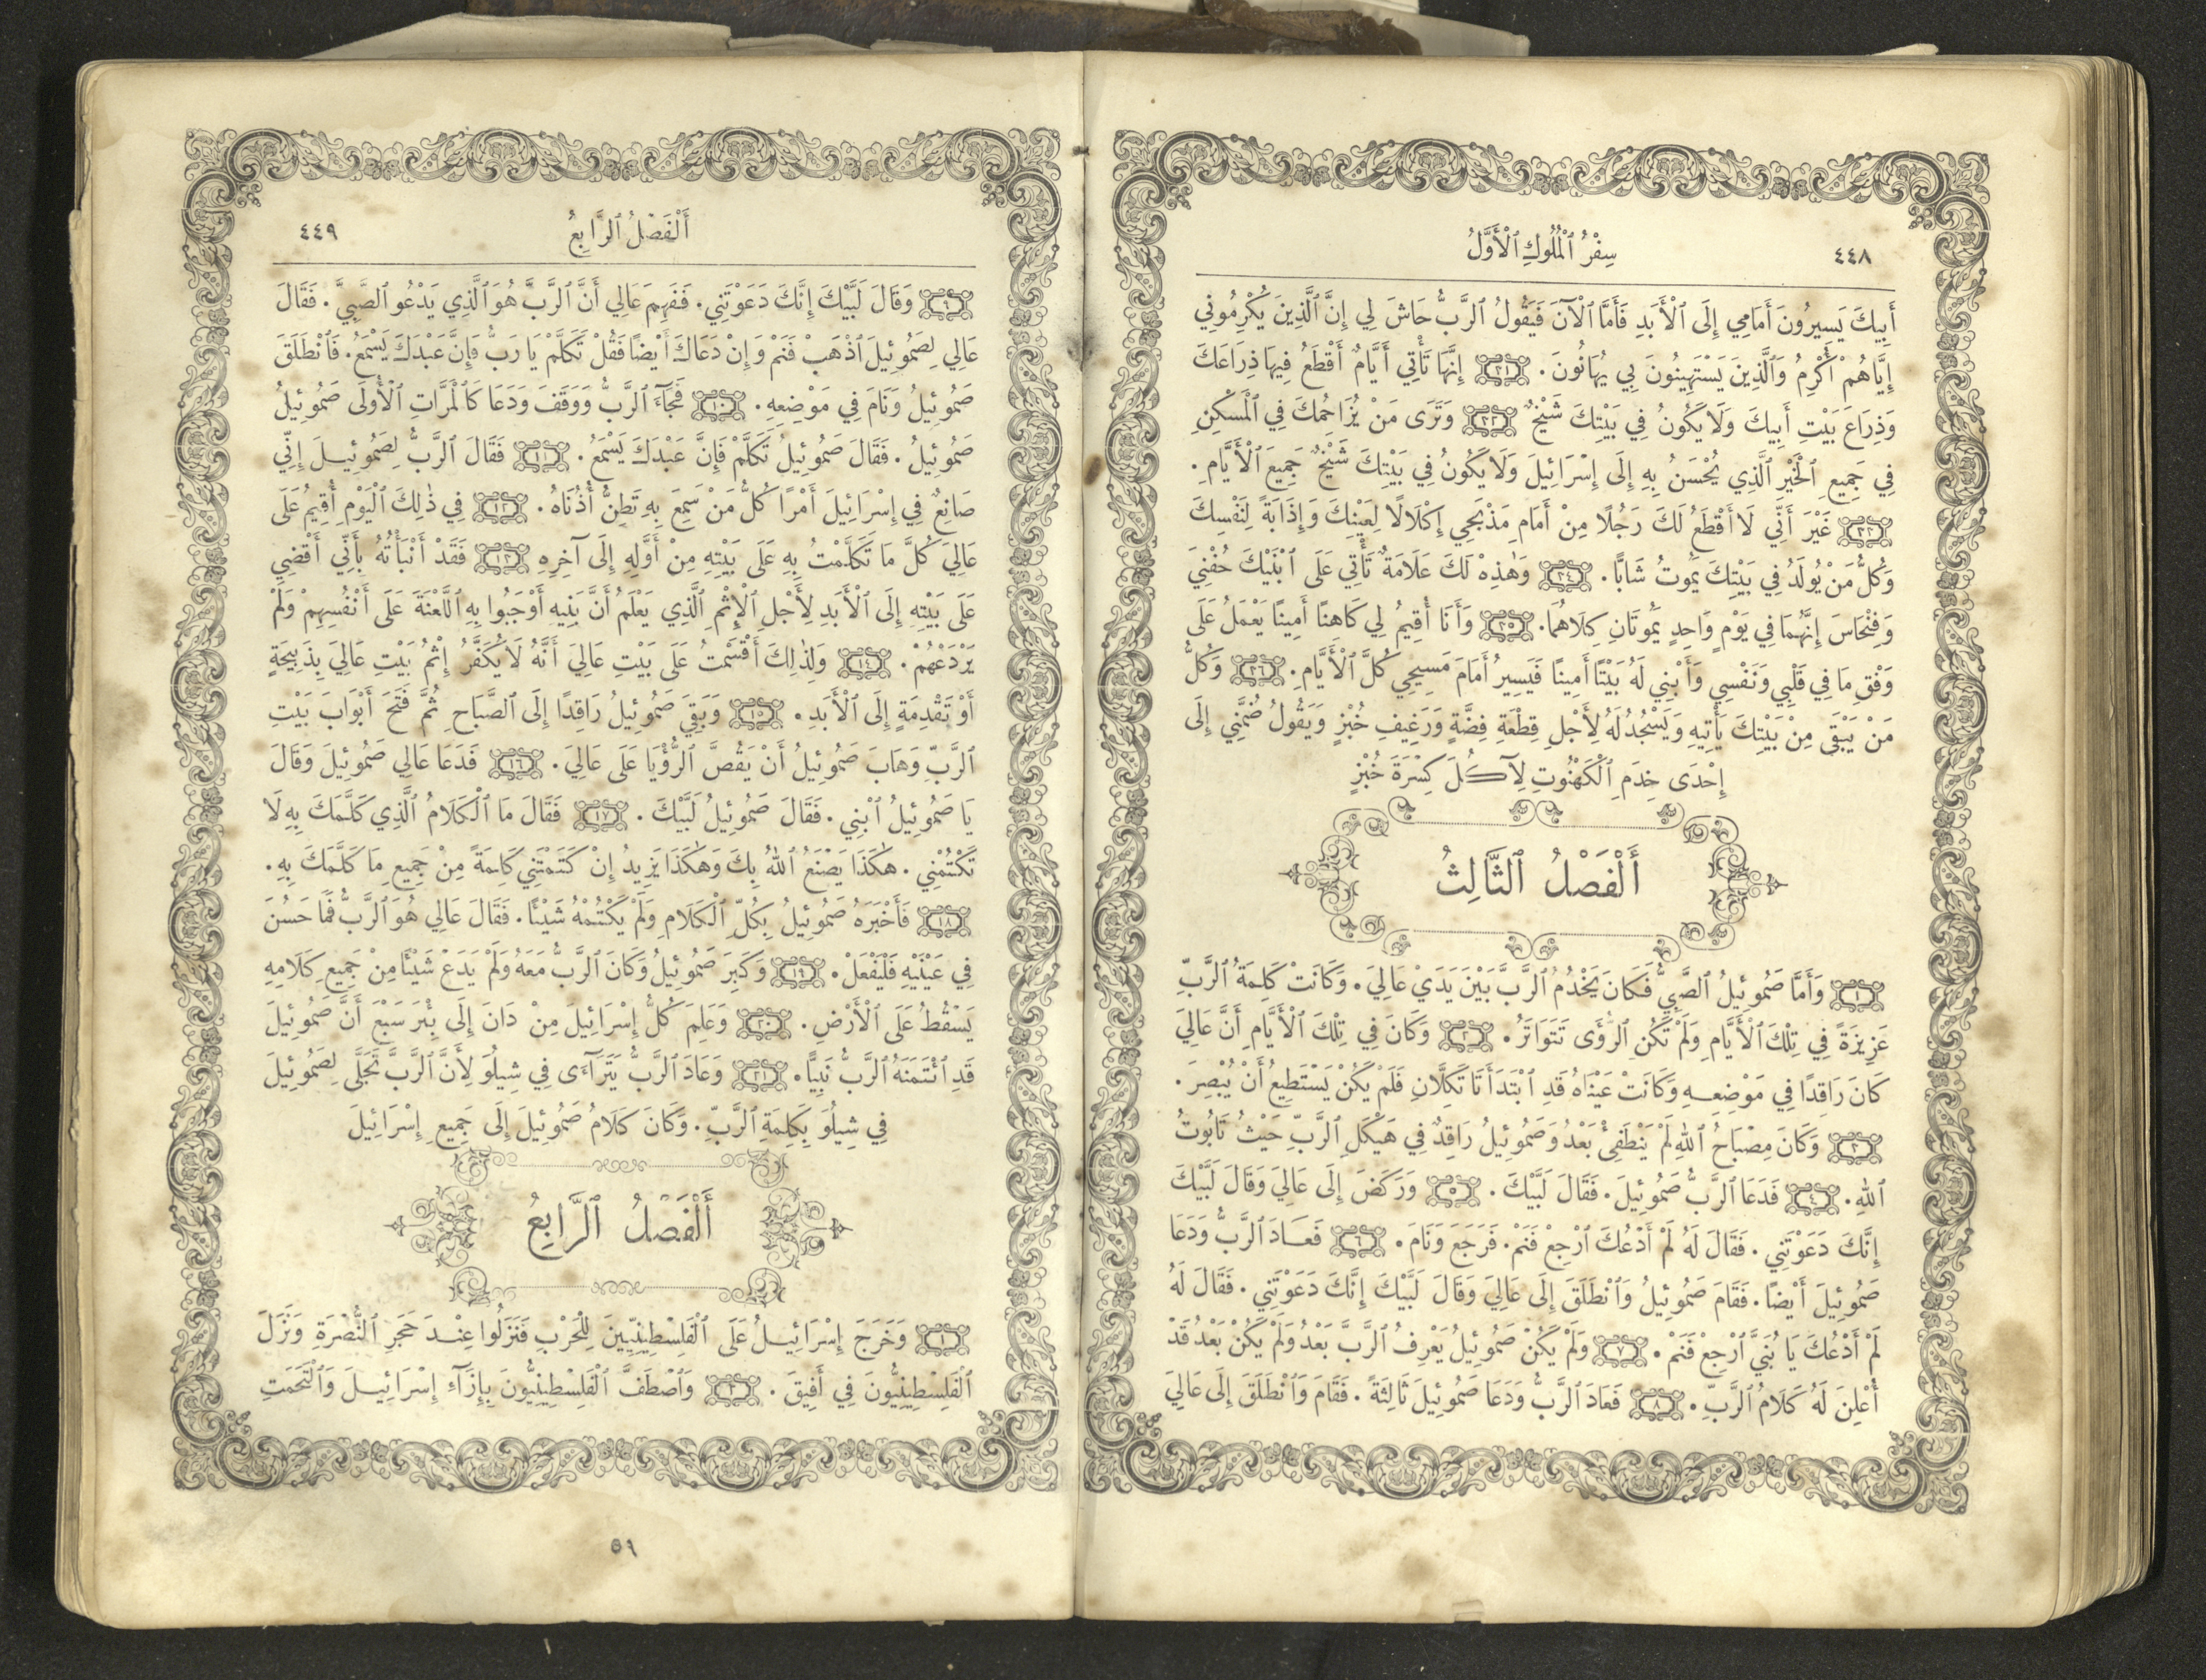 ٤٤٨
سِفْرُ ٱلْمُلُوكِ ٱلْأَوَّلُ
أَبِيكَ يَسِيرُونَ أَمَامِي إِلَى ٱلْأَبَدِ فَأَمَّا ٱلْآنَ فَيَقُولُ ٱلرَّبُّ حَاشَ لِي إِنَّ ٱلَّذِينَ يُكْرِمُونِي
إِيَّاهُمْ أُكْرِمُ وَٱلَّذِينَ يَسْتَهِينُونَ بِي يُهَانُونَ . ٣١ إِنَّهَا تَأْتِي أَيَّامٌ أَقْطَعُ فِيهَا ذِرَاعَكَ
وَذِرَاعَ بَيْتِ أَبِيكَ وَلَا يَكُونُ فِي بَيْتِكَ شَيْخٌ ٣٢ وَتَرَى مَنْ يُزَاحِمُكَ فِي ٱلْمَسْكِنِ
فِي جَمِيعِ ٱلْخَيْرِ ٱلَّذِي يُحْسَنُ بِهِ إِلَى إِسْرَائِيلَ وَلَا يَكُونُ فِي بَيْتِكَ شَيْخٌ جَمِيعَ ٱلْأَيَّامِ .
٣٣ غَيْرَ أَنِّي لَا أَقْطَعُ لَكَ رَجُلًا مِنْ أَمَامِ مَذْبَحِي إِكْلَالًا لِعَيْنِكَ وَإِذَابَةً لِنَفْسِكَ
وَكُلُّ مَنْ يُولَدُ فِي بَيْتِكَ يَمُوتُ شَابًّا . ٣٤ وَهٰذِهْ لَكَ عَلَامَةٌ تَأْتِي عَلَى ٱبْنَيْكَ حُفْنِيَ
وَفِنْحَاسَ إِنَّهُمَا فِي يَوْمٍ وَاحِدٍ يَمُوتَانِ كِلَاهُمَا. ٣٥ وَأَنَا أُقِيمُ لِي كَاهِنًا أَمِينًا يَعْمَلُ عَلَى
وَفْقِ مَا فِي قَلْبِي وَنَفْسِي وَأَبْنِي لَهُ بَيْتًا أَمِينًا فَيَسِيرُ أَمَامَ مَسِيحِي كُلَّ ٱلْأَيَّامِ . ٣٦ وَكُلُّ
مَنْ يَبْقَى مِنْ بَيْتِكَ يَأْتِيهِ وَيَسْجُدُ لَهُ لِأَجْلِ قِطْعَةِ فِضَّةٍ وَرَغِيفِ خُبْزٍ وَيَقُولُ ضُمَّنِي إِلَى
إِحْدَى خِدَمِ ٱلْكَهْنُوتِ لِآكُلَ كِسْرَةَ خُبْزٍ
أَلْفَصْلُ ٱلثَّالِثُ
١ وَأَمَّا صَمُوئِيلُ ٱلصَّبِيُّ فَكَانَ يَخْدُمُ ٱلرَّبَّ بَيْنَ يَدَيْ عَالِيَ . وَكَانَتْ كَلِمَةُ ٱلرَّبِّ
عَزِيزَةً فِي تِلْكَ ٱلْأَيَّامِ وَلَمْ تَكُنِ ٱلرُّؤَى تَتَوَاتَرُ . ٢ وَكَانَ فِي تِلْكَ ٱلْأَيَّامِ أَنَّ عَالِيَ
كَانَ رَاقِدًا فِي مَوْضِعِهِ وَكَانَتْ عَيْنَاهُ قَدِ ٱبْتَدَأَتَا تَكِلَّانِ فَلَمْ يَكُنْ يَسْتَطِيعُ أَنْ يُبْصِرَ .
٣ وَكَانَ مِصْبَاحُ ٱللهِ لَمْ يَنْطَفِئْ بَعْدُ وَصَمُوئِيلُ رَاقِدٌ فِي هَيْكَلِ ٱلرَّبِّ حَيْثُ تَابُوتُ
ٱللهِ . ٤ فَدَعَا ٱلرَّبُّ صَمُوئِيلَ . فَقَالَ لَبَّيْكَ . ٥ وَرَكَضَ إِلَى عَالِيَ وَقَالَ لَبَّيْكَ
إِنَّكَ دَعَوْتَنِي . فَقَالَ لَهُ لَمْ أَدْعُكَ ٱرْجِعْ فَنَمْ . فَرَجَعَ وَنَامَ . ٦ فَعَادَ ٱلرَّبُّ وَدَعَا
صَمُوئِيلَ أَيْضًا . فَقَامَ صَمُوئِيلُ وَٱنْطَلَقَ إِلَى عَالِيَ وَقَالَ لَبَّيْكَ إِنَّكَ دَعَوْتَنِي . فَقَالَ لَهُ
لَمْ أَدْعُكَ يَا بُنَيَّ ٱرْجِعْ فَنَمْ . ٧ وَلَمْ يَكُنْ صَمُوئِيلُ يَعْرِفُ ٱلرَّبَّ بَعْدُ وَلَمْ يَكُنْ بَعْدُ قَدْ
أُعْلِنَ لَهُ كَلَامُ ٱلرَّبِّ . ٨ فَعَادَ ٱلرَّبُّ وَدَعَا صَمُوئِيلَ ثَالِثَةً . فَقَامَ وَٱنْطَلَقَ إِلَى عَالِيَ
أَلْفَصْلُ ٱلرَّابِعُ
٤٤٩
٩ وَقَالَ لَبَّيْكَ إِنَّكَ دَعَوْتَنِي . فَفَهِمَ عَالِي أَنَّ ٱلرَّبَّ هُوَ ٱلَّذِي يَدْعُو ٱلصَّبِيَّ . فَقَالَ
عَالِي لِصَمُوئِيلَ ٱذْهَبْ فَنَمْ وَإِنْ دَعَاكَ أَيْضًا فَقُلْ تَكَلَّمْ يَا رَبُّ فَإِنَّ عَبْدَكَ يَسْمَعُ . فَٱنْطَلَقَ
صَمُوئِيلُ وَنَامَ فِي مَوْضِعِهِ . ١٠ فَجَآءَ ٱلرَّبُّ وَوَقَفَ وَدَعَا كَٱلْمَرَّاتِ ٱلْأُولَى صَمُوئِيلُ
صَمُوئِيلُ . فَقَالَ صَمُوئِيلُ تَكَلَّمْ فَإِنَّ عَبْدَكَ يَسْمَعُ . ١١ فَقَالَ ٱلرَّبُّ لِصَمُوئِيلَ إِنِّي
صَانِعٌ فِي إِسْرَائِيلَ أَمْرًا كُلُّ مَنْ سَمِعَ بِهِ تَطِنُّ أُذُنَاهُ . ١٢ فِي ذٰلِكَ ٱلْيَوْمِ أُقِيمُ عَلَى
عَالِيَ كُلَّ مَا تَكَلَّمْتُ بِهِ عَلَى بَيْتِهِ مِنْ أَوَّلِهِ إِلَى آخِرِهِ ١٣ فَقَدْ أَنْبَأْتُهُ بِأَنِّي أَقْضِي
عَلَى بَيْتِهِ إِلَى ٱلْأَبَدِ لِأَجْلِ ٱلْإِثْمِ ٱلَّذِي يَعْلَمُ أَنَّ بَنِيهِ أَوْجَبُوا بِهِ ٱللَّعْنَةَ عَلَى أَنْفُسِهِمْ وَلَمْ
يَرْدَعْهُمْ . ١٤ وَلِذٰلِكَ أَقْسَمْتُ عَلَى بَيْتِ عَالِيَ أَنَّهُ لَا يُكَفَّرُ إِثْمُ بَيْتِ عَالِيَ بِذَبِيحَةٍ
أَوْ تَقْدِمَةٍ إِلَى ٱلْأَبَدِ . ١٥ وَبَقِيَ صَمُوئِيلُ رَاقِدًا إِلَى ٱلصَّبَاحِ ثُمَّ فَتَحَ أَبْوَابَ بَيْتِ
ٱلرَّبِّ وَهَابَ صَمُوئِيلُ أَنْ يَقُصَّ ٱلرُّؤْيَا عَلَى عَالِيَ . ١٦ فَدَعَا عَالِي صَمُوئِيلَ وَقَالَ
يَا صَمُوئِيلُ ٱبْنِي . فَقَالَ صَمُوئِيلُ لَبَّيْكَ . ١٧ فَقَالَ مَا ٱلْكَلَامُ ٱلَّذِي كَلَّمَكَ بِهِ لَا
تَكْتُمْنِي . هٰكَذَا يَصْنَعُ ٱللهُ بِكَ وَهٰكَذَا يَزِيدُ إِنْ كَتَمْتَنِي كَلِمَةً مِنْ جَمِيعِ مَا كَلَّمَكَ بِهِ .
١٨ فَأَخْبَرَهُ صَمُوئِيلُ بِكُلِّ ٱلْكَلَامِ وَلَمْ يَكْتُمْهُ شَيْئًا . فَقَالَ عَالِي هُوَ ٱلرَّبُّ فَمَا حَسُنَ
فِي عَيْنَيْهِ فَلْيَفْعَلْ . ١٩ وَكَبِرَ صَمُوئِيلُ وَكَانَ ٱلرَّبُّ مَعَهُ وَلَمْ يَدَعْ شَيْئًا مِنْ جَمِيعِ كَلَامِهِ
يَسْقُطُ عَلَى ٱلْأَرْضِ . ٢٠ وَعَلِمَ كُلُّ إِسْرَائِيلَ مِنْ دَانَ إِلَى بِئْرَ سَبْعَ أَنَّ صَمُوئِيلَ
قَدِ ٱئْتَمَنَهُ ٱلرَّبُّ نَبِيًّا . ٢١ وَعَادَ ٱلرَّبُّ يَتَرَآءَى فِي شِيلُوَ لِأَنَّ ٱلرَّبَّ تَجَلَّى لِصَمُوئِيلَ
فِي شِيلُوَ بِكَلِمَةِ ٱلرَّبِّ . وَكَانَ كَلَامُ صَمُوئِيلَ إِلَى جَمِيعِ إِسْرَائِيلَ
أَلْفَصْلُ ٱلرَّابِعُ
١ وَخَرَجَ إِسْرَائِيلُ عَلَى ٱلْفَلِسْطِينِيِّينَ لِلْحَرْبِ فَنَزَلُوا عِنْدَ حَجَرِ ٱلنُّصْرَةِ وَنَزَلَ
ٱلْفَلِسْطِينِيُّونَ فِي أَفِيقَ . ٢ وَٱصْطَفَّ ٱلْفَلِسْطِينِيُّونَ بِإِزَآءِ إِسْرَائِيلَ وَٱلْتَحَمَتِ
٥٩